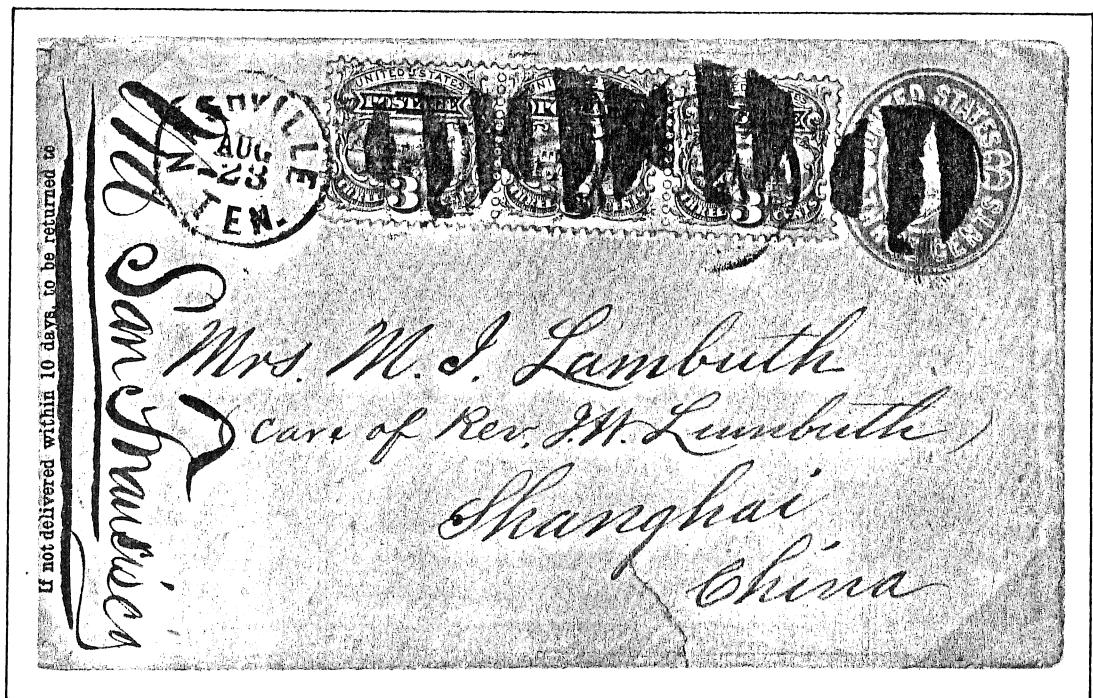 If not delivered within 10 days, to be returned to
San Fransisco
NASHVILLE
AUG
28
TEN.
UNITED STATES
POSTAGE
3
3
3
CENTS
UNITED STATES
THREE CENTS
Mrs. M. I. Lambuth
(care of Rev. J. W. Lambuth)
Shanghai
China